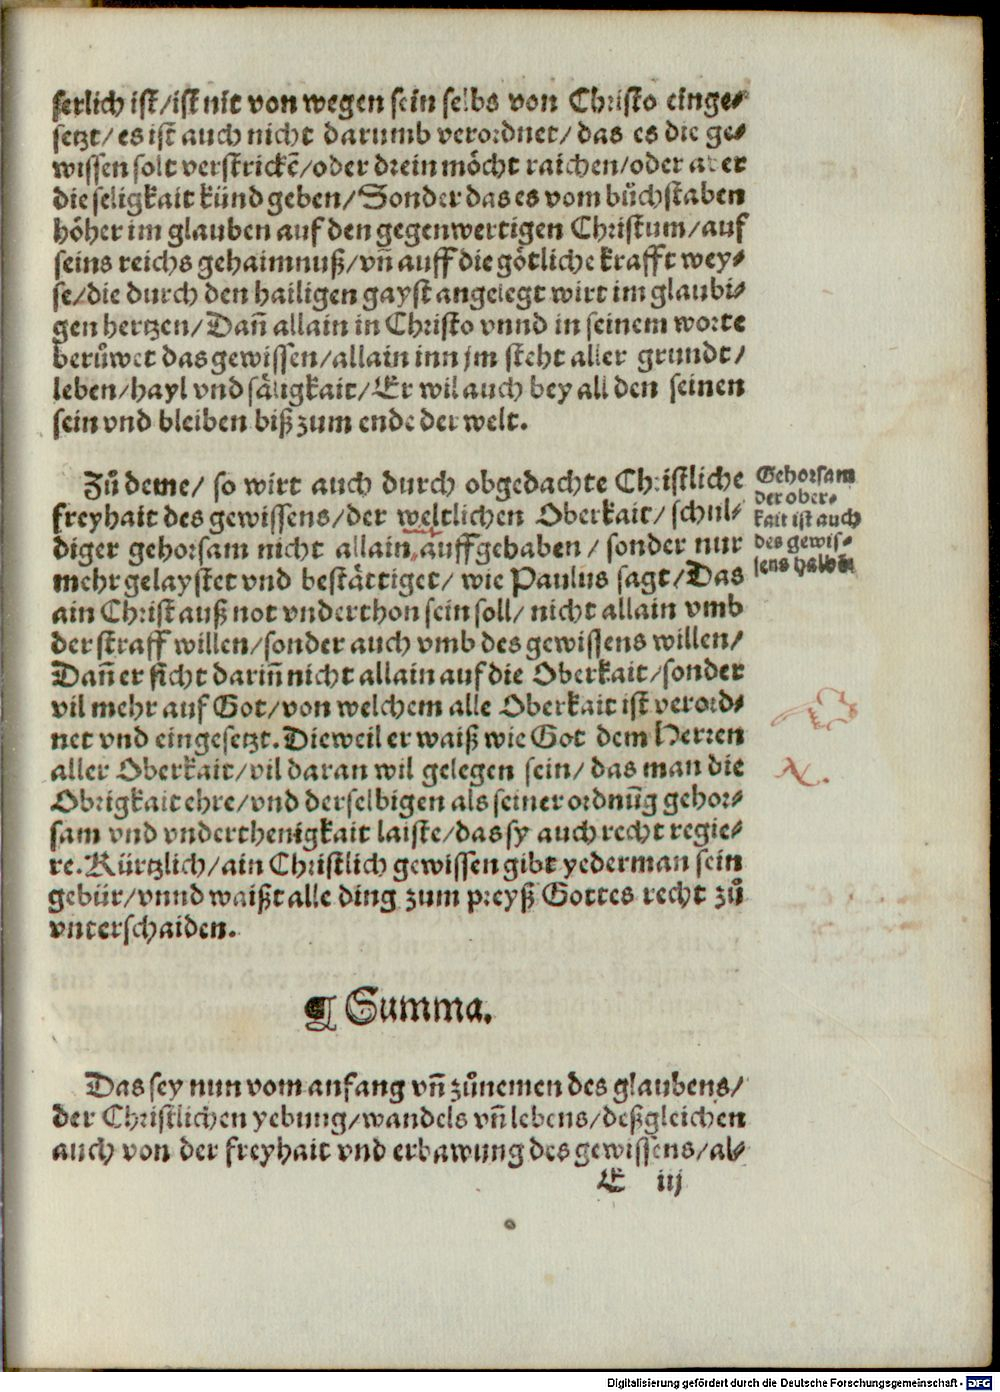 serlich ist/ist nit von wegen sein selbs von Christo einge-
setzt/es ist auch nicht darumb verordnet/das es die ge-
wissen solt verstrickē/oder drein möcht raichen/oder aber
die seligkait künd geben/Sonder das es vom bůchstaben
höher im glauben auf den gegenwertigen Christum/auf
seins reichs gehaimnuß/vn̄ auff die götliche krafft wey-
se/die durch den hailigen gayst angelegt wirt im glaubi-
gen hertzen/Dan̄ allain in Christo vnnd in seinem worte
berůwet das gewissen/allain inn jm steht aller grundt/
leben/hayl vnd säligkait/Er wil auch bey all den seinen
sein vnd bleiben biß zum ende der welt.
Zů deme/ so wirt auch durch obgedachte Christliche
freyhait des gewissens/der weltlichen Oberkait/ schul-
diger gehorsam nicht allain auffgehaben / sonder nur
mehr gelaystet vnd bestättiget/ wie Paulus sagt/Das
ain Christ auß not vnderthon sein soll/ nicht allain vmb
der straff willen/sonder auch vmb des gewissens willen/
Dan̄ er sicht darin̄ nicht allain auf die Oberkait/sonder
vil mehr auf Got/von welchem alle Oberkait ist verord-
net vnd eingesetzt. Dieweil er waiß wie Got dem Herren
aller Oberkait/vil daran wil gelegen sein/ das man die
Obrigkait ehre/vnd derselbigen als seiner ordnūg gehor-
sam vnd vnderthenigkait laiste/das sy auch recht regie-
re. Kürtzlich/ain Christlich gewissen gibt yederman sein
gebür/vnnd waißt alle ding zum preyß Gottes recht zů
vnterschaiden.
Gehorsam
der ober-
kait ist auch
des gewis-
sens halbē
N.
¶ Summa.
Das sey nun vom anfang vn̄ zůnemen des glaubens/
der Christlichen yebung/wandels vn̄ lebens/deßgleichen
auch von der freyhait vnd erbawung des gewissens/al-
E iij
Digitalisierung gefördert durch die Deutsche Forschungsgemeinschaft - DFG